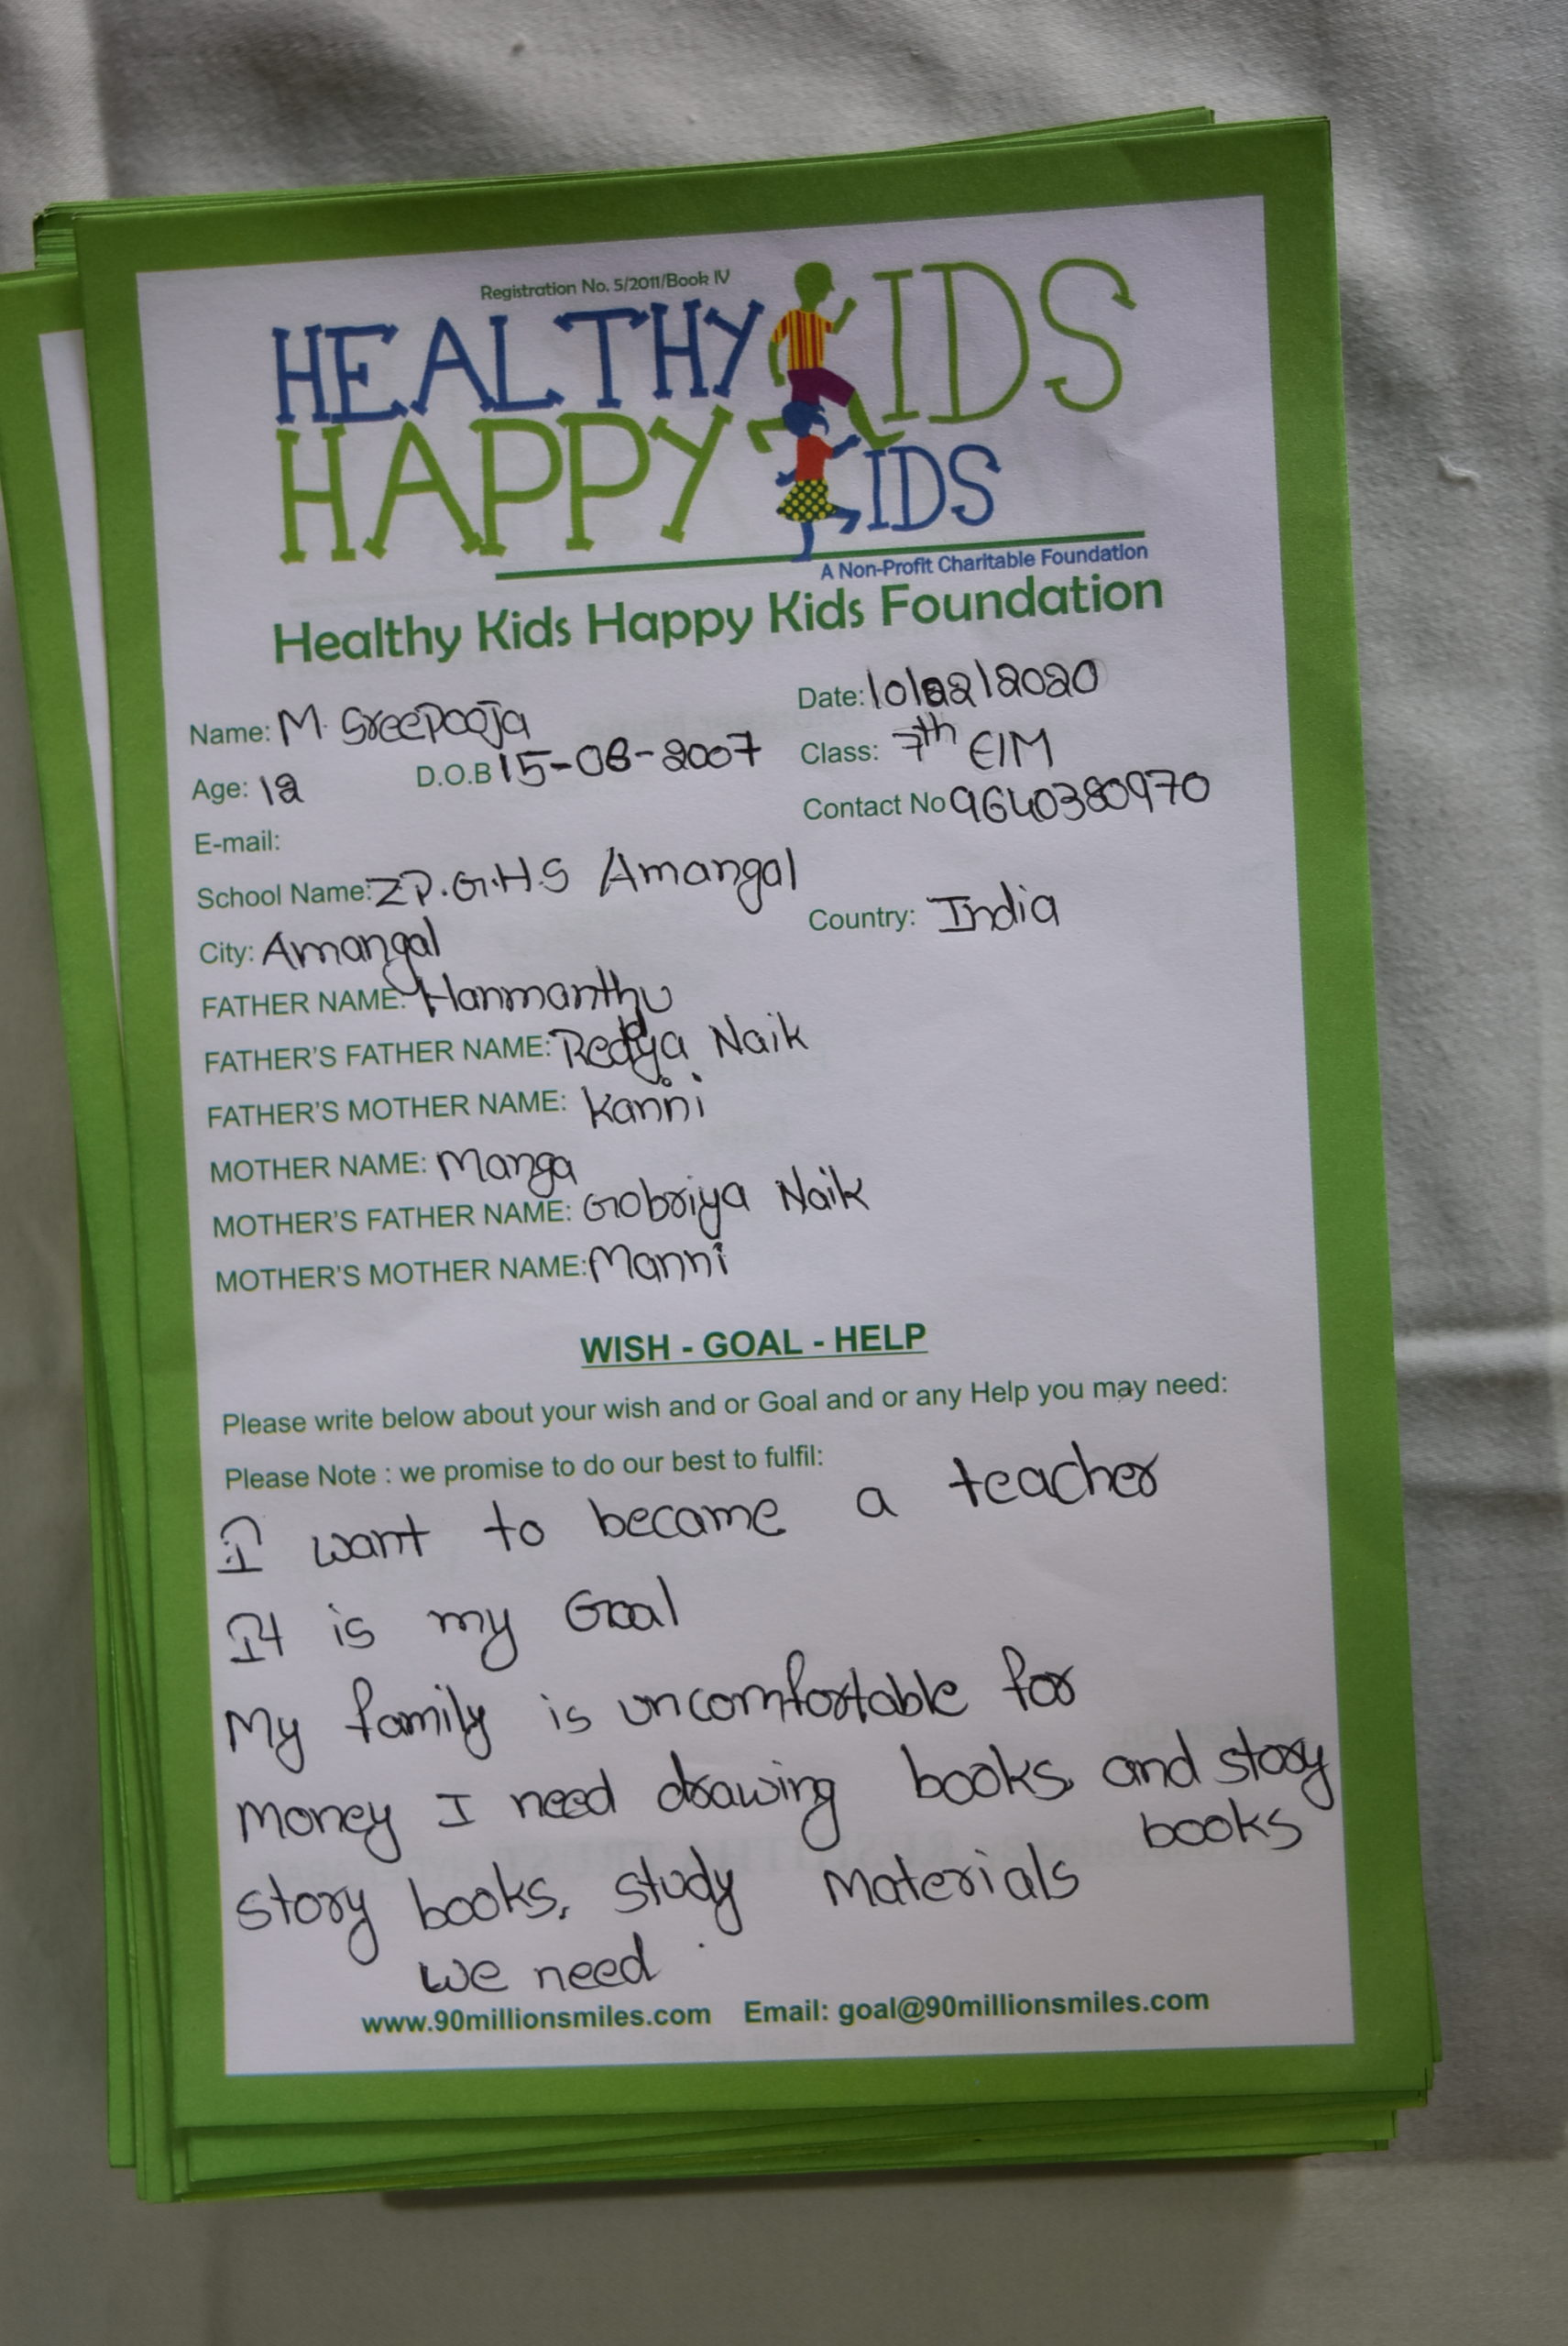 Registration No. 5/2011/Book IV
HEALTHY KIDS
HAPPY KIDS
A Non-Profit Charitable Foundation
Healthy Kids Happy Kids Foundation
Name: M. SreePooja
Date: 10/22/2020
Age: 12 D.O.B 15-08-2007
Class: 7th E/M
Contact No 9640380970
E-mail:
School Name: ZP.G.H.S Amangal
City: Amangal
Country: India
FATHER NAME: Hanmanthu
FATHER'S FATHER NAME: Redya Naik
FATHER'S MOTHER NAME: Kanni
MOTHER NAME: Manga
MOTHER'S FATHER NAME: Gobriya Naik
MOTHER'S MOTHER NAME: Manni
WISH - GOAL - HELP
Please write below about your wish and or Goal and or any Help you may need:
Please Note : we promise to do our best to fulfil:
I want to became a teacher
It is my Goal
My family is uncomfortable for
money I need drawing books, and story
books
story books, study materials
we need
www.90millionsmiles.com Email: goal@90millionsmiles.com